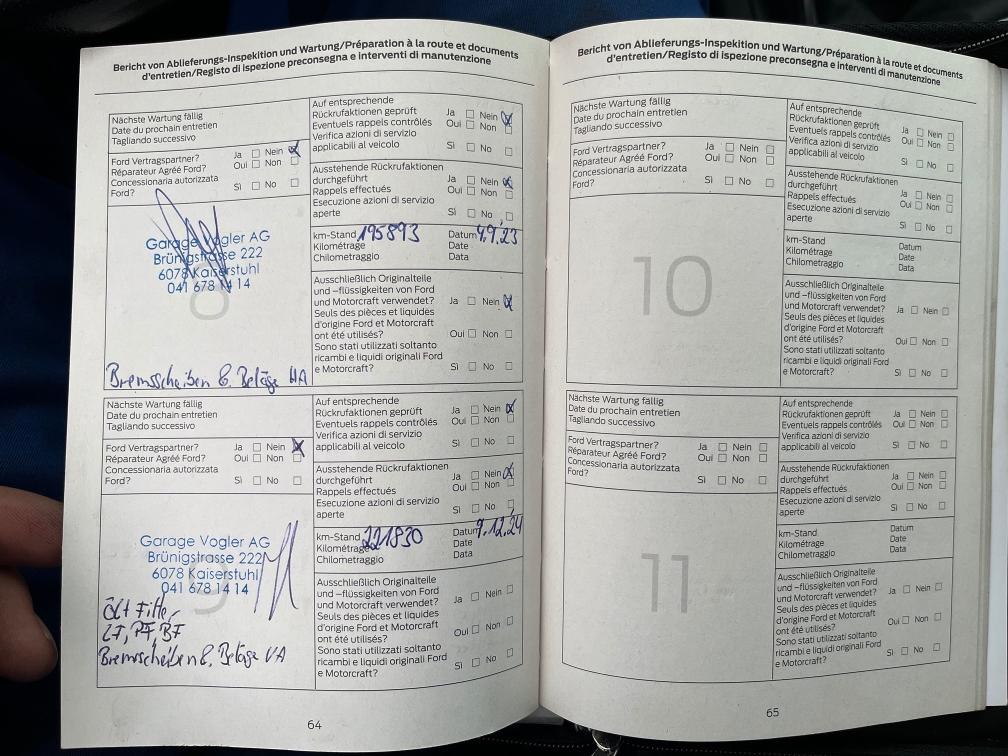 Bericht von Ablieferungs-Inspekition und Wartung/Préparation à la route et documents
d'entretien/Registo di ispezione preconsegna e interventi di manutenzione
Nächste Wartung fällig
Date du prochain entretien
Tagliando successivo
Ford Vertragspartner? Ja Nein
Réparateur Agréé Ford? Oui Non
Concessionaria autorizzata
Ford? Sì No
Garage Vogler AG
Brünigstrasse 222
6078 Kaiserstuhl
041 678 14 14
8
Bremsscheiben & Beläge HA
Auf entsprechende
Rückrufaktionen geprüft Ja Nein
Eventuels rappels contrôlés Oui Non
Verifica azioni di servizio
applicabili al veicolo Sì No
Ausstehende Rückrufaktionen
durchgeführt Ja Nein
Rappels effectués Oui Non
Esecuzione azioni di servizio
aperte Sì No
km-Stand 195893 Datum 4.9.23
Kilométrage Date
Chilometraggio Data
Ausschließlich Originalteile
und -flüssigkeiten von Ford
und Motorcraft verwendet? Ja Nein
Seuls des pièces et liquides
d'origine Ford et Motorcraft
ont été utilisés? Oui Non
Sono stati utilizzati soltanto
ricambi e liquidi originali Ford
e Motorcraft? Sì No
Nächste Wartung fällig
Date du prochain entretien
Tagliando successivo
Ford Vertragspartner? Ja Nein
Réparateur Agréé Ford? Oui Non
Concessionaria autorizzata
Ford? Sì No
Garage Vogler AG
Brünigstrasse 222
6078 Kaiserstuhl
041 678 14 14
9
Filter,
LF, PF, BF
Bremsscheiben & Beläge VA
Auf entsprechende
Rückrufaktionen geprüft Ja Nein
Eventuels rappels contrôlés Oui Non
Verifica azioni di servizio
applicabili al veicolo Sì No
Ausstehende Rückrufaktionen
durchgeführt Ja Nein
Rappels effectués Oui Non
Esecuzione azioni di servizio
aperte Sì No
km-Stand 221830 Datum 9.12.24
Kilométrage Date
Chilometraggio Data
Ausschließlich Originalteile
und -flüssigkeiten von Ford
und Motorcraft verwendet? Ja Nein
Seuls des pièces et liquides
d'origine Ford et Motorcraft
ont été utilisés? Oui Non
Sono stati utilizzati soltanto
ricambi e liquidi originali Ford
e Motorcraft? Sì No
64
Bericht von Ablieferungs-Inspekition und Wartung/Préparation à la route et documents
d'entretien/Registo di ispezione preconsegna e interventi di manutenzione
Nächste Wartung fällig
Date du prochain entretien
Tagliando successivo
Ford Vertragspartner? Ja Nein
Réparateur Agréé Ford? Oui Non
Concessionaria autorizzata
Ford? Sì No
10
Auf entsprechende
Rückrufaktionen geprüft Ja Nein
Eventuels rappels contrôlés Oui Non
Verifica azioni di servizio
applicabili al veicolo Sì No
Ausstehende Rückrufaktionen
durchgeführt Ja Nein
Rappels effectués Oui Non
Esecuzione azioni di servizio
aperte Sì No
km-Stand Datum
Kilométrage Date
Chilometraggio Data
Ausschließlich Originalteile
und -flüssigkeiten von Ford
und Motorcraft verwendet? Ja Nein
Seuls des pièces et liquides
d'origine Ford et Motorcraft
ont été utilisés? Oui Non
Sono stati utilizzati soltanto
ricambi e liquidi originali Ford
e Motorcraft? Sì No
Nächste Wartung fällig
Date du prochain entretien
Tagliando successivo
Ford Vertragspartner? Ja Nein
Réparateur Agréé Ford? Oui Non
Concessionaria autorizzata
Ford? Sì No
11
Auf entsprechende
Rückrufaktionen geprüft Ja Nein
Eventuels rappels contrôlés Oui Non
Verifica azioni di servizio
applicabili al veicolo Sì No
Ausstehende Rückrufaktionen
durchgeführt Ja Nein
Rappels effectués Oui Non
Esecuzione azioni di servizio
aperte Sì No
km-Stand Datum
Kilométrage Date
Chilometraggio Data
Ausschließlich Originalteile
und -flüssigkeiten von Ford
und Motorcraft verwendet? Ja Nein
Seuls des pièces et liquides
d'origine Ford et Motorcraft
ont été utilisés? Oui Non
Sono stati utilizzati soltanto
ricambi e liquidi originali Ford
e Motorcraft? Sì No
65